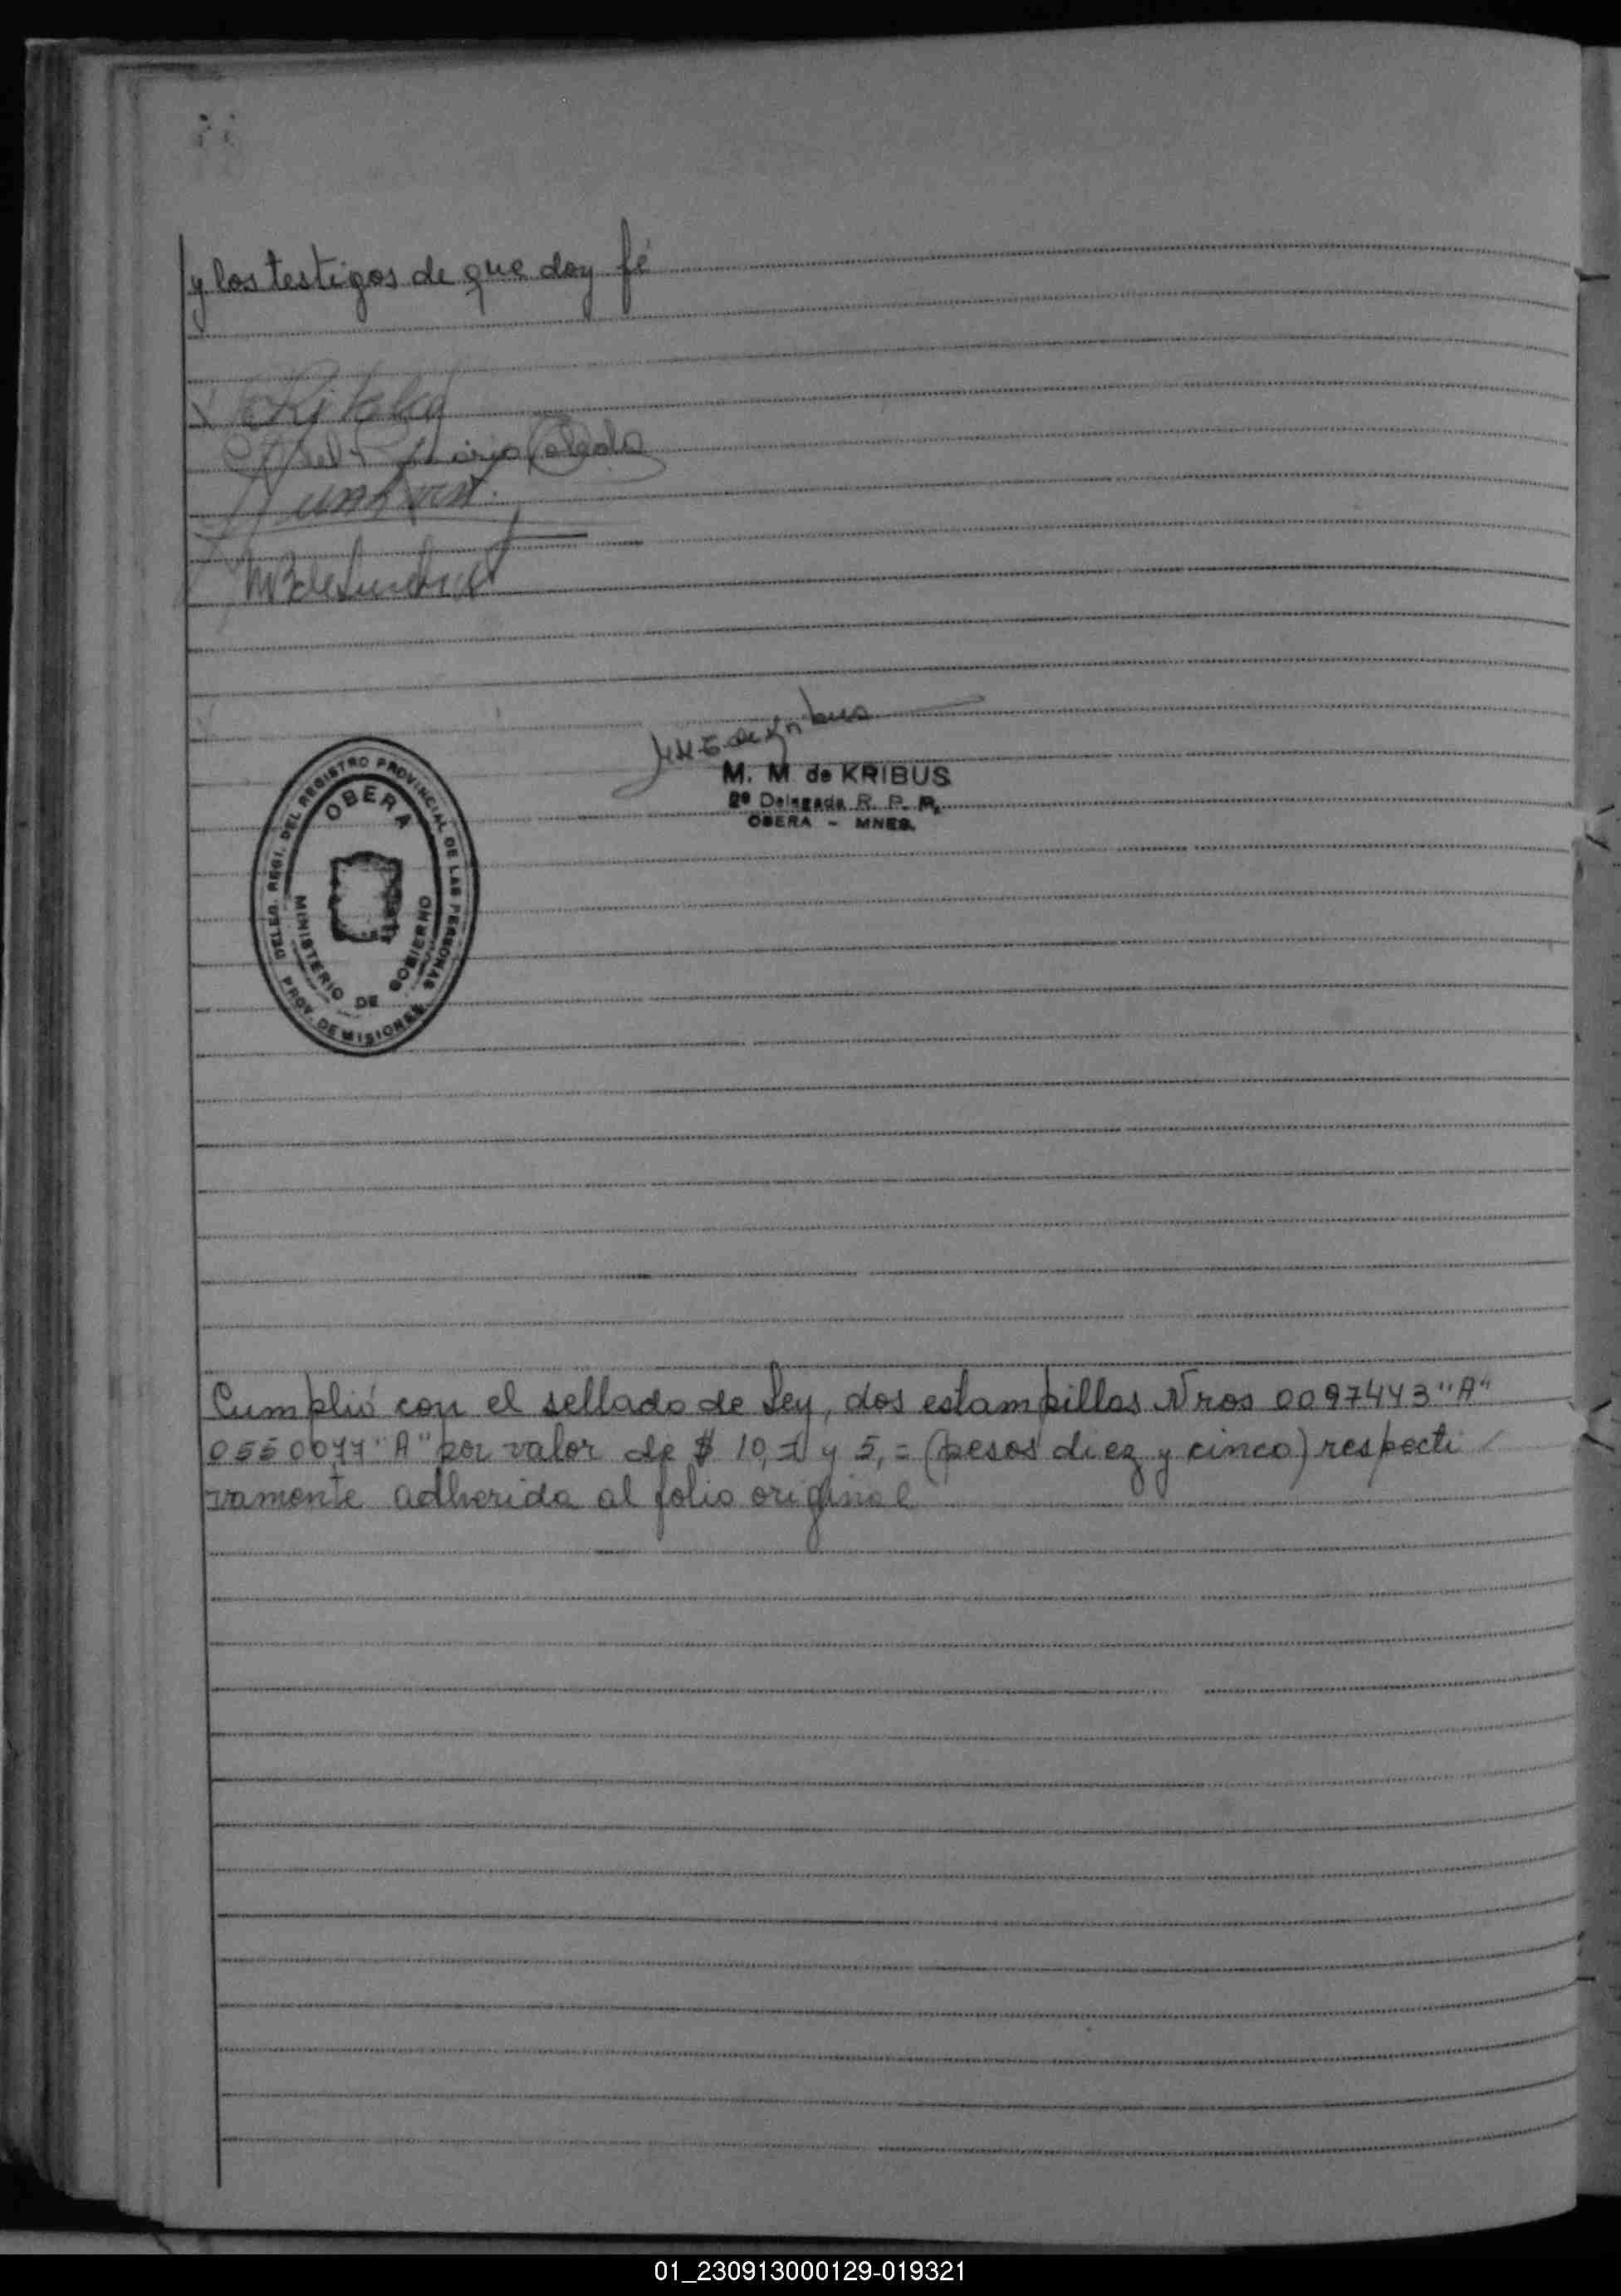 y los testigos de que doy fé
Maria
M. M. de KRIBUS
2º Delegada R. P. P.
OBERA - MNES.
DELEG. REGI. DEL REGISTRO PROVINCIAL DE LAS PERSONAS
OBERA
MINISTERIO DE GOBIERNO
PROV. DE MISIONES
Cumplió con el sellado de Ley, dos estampillas Nros 0097443 "A"
"A" por valor de $ 10,= y 5,= (pesos diez y cinco) respecti
vamente adherida al folio original
01_230913000129-019321